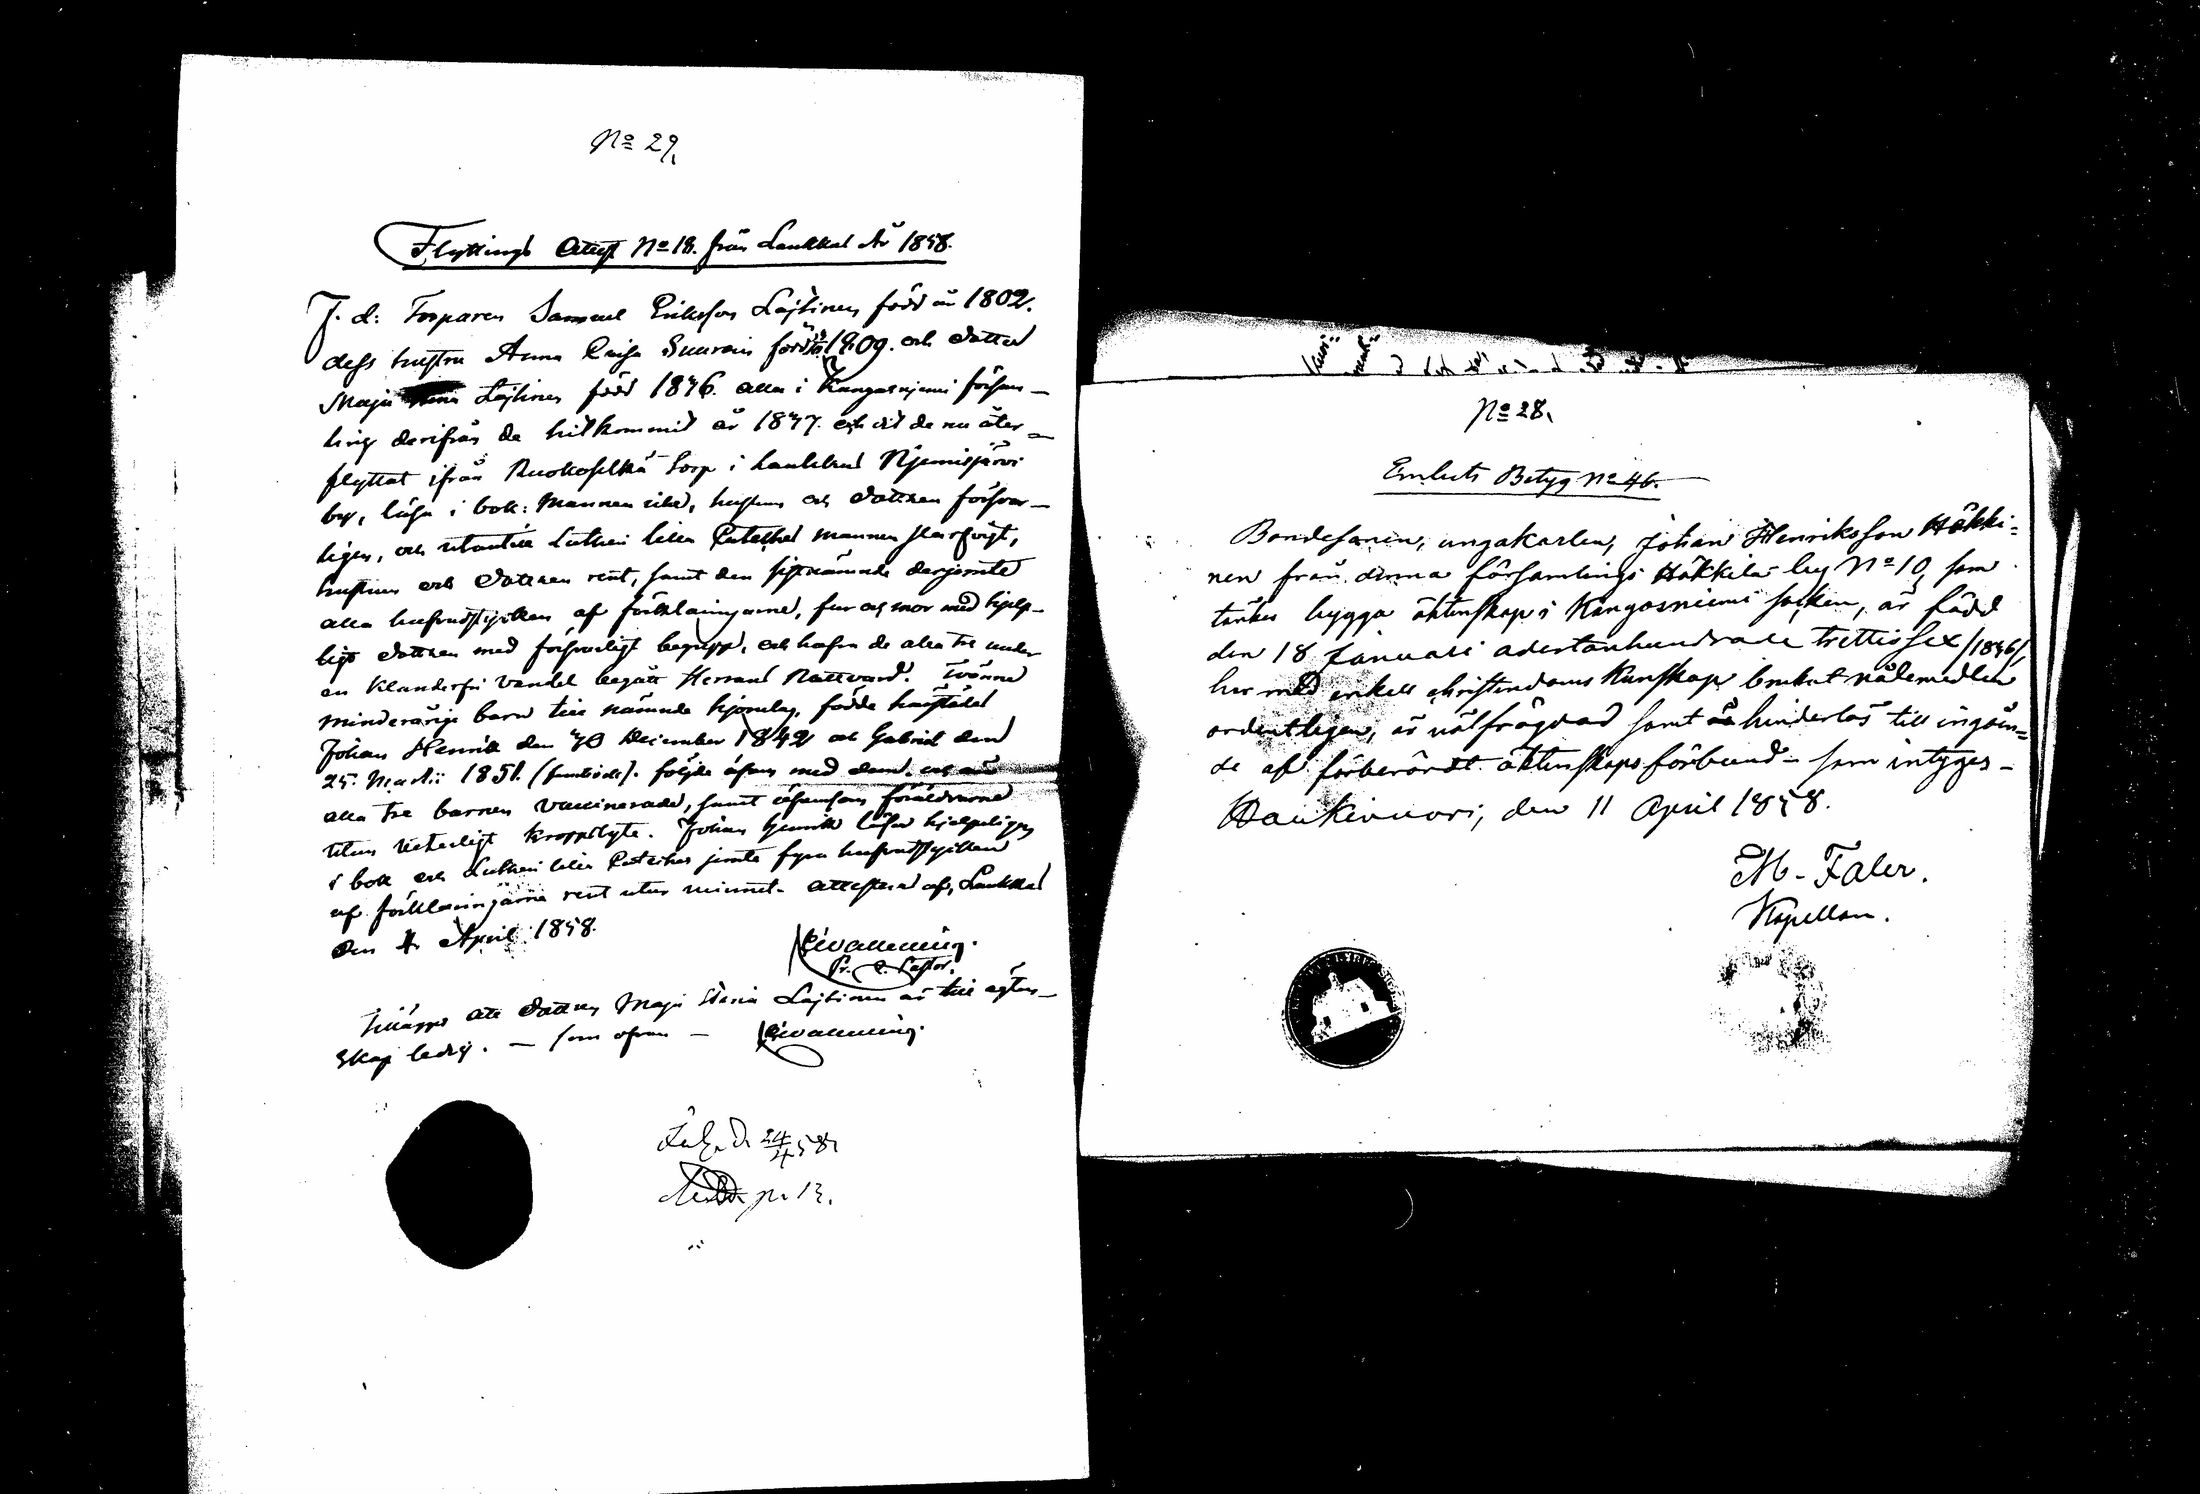 No 29.
Flyttings Attest No 18. från Laukkas År 1858.
F. d: Torparen Samuel Eriksson Lajtinen född år 1802.
dess hustru Anna Caisa Suuroin född år 1809. och dotter
Maja Lajtinen född 1836. alla i Kangasnjemi försam-
ling derifrån de hitkommit år 1847. och dit de nu åter-
flyttat ifrån Ruokoselkä torp i Laukkas Njemisjärvi
by, läsa i bok: mannen illa, hustrun och dottren försvar-
ligen, och utantill Lutheri lilla Cateches mannen slarfvigt,
hustrun och dottren rent, samt den sistnämnde derjemte
alla husfrustycken af förklaringarne, far och mor med hjelp-
ligt dottren med försvarligt begrepp, och hafva de alla tre under
en klanderfri vandel begått Herrans Nattvard. Tvänne
minderårige barn till nämnde hjonelag, födde härstädes
Johan Henrik den 30 December 1842 och Gabriel den
25. Martii 1851. följde äfven med dem. och äro
alla tre barnen vaccinerade, samt äfvensom föräldrarne
utan veterligt kroppslyte. Johan Henrik läser hjelpeligen
i bok och Lutheri lilla Cateches jemte fyra husfrustycken
af förklaringarne rent utur minnet. attesterad af, Laukkas
den 4 April 1858.
Pr. C. Pastor.
Tilläggs att dottren Maja Lajtinen är till ägten-
skap ledig. - som ofvan -
24/4 58.
p. 13.
No 28.
Enluts Betyg No 46.
Bondesonen, ungakarlen, Johan Henriksson Häkki=
nen från denna församlings Häkkilä by No 10, som
tänker bygga äktenskap i Kangasniemi socken, är född
den 18 Januari adertonhundrade trettiosex /1836/,
har med enkell christendoms kunskap brukat nådemedlen
ordentligen, är välfrägdad samt hinderlös till ingåen=
de af förberördt äktenskapsförbund - som intyges -
Haukivuori, den 11 April 1858.
M. Faler.
Kapellan.